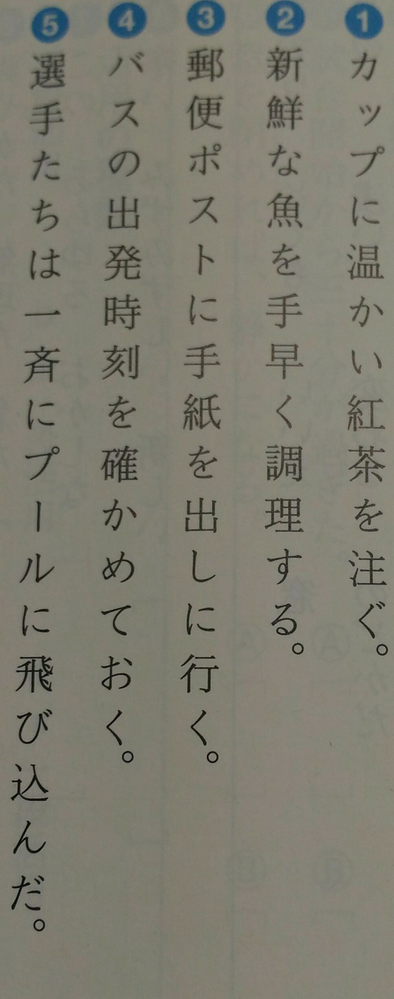 ❶カップに温かい紅茶を注ぐ。
❷新鮮な魚を手早く調理する。
❸郵便ポストに手紙を出しに行く。
❹バスの出発時刻を確かめておく。
❺選手たちは一斉にプールに飛び込んだ。